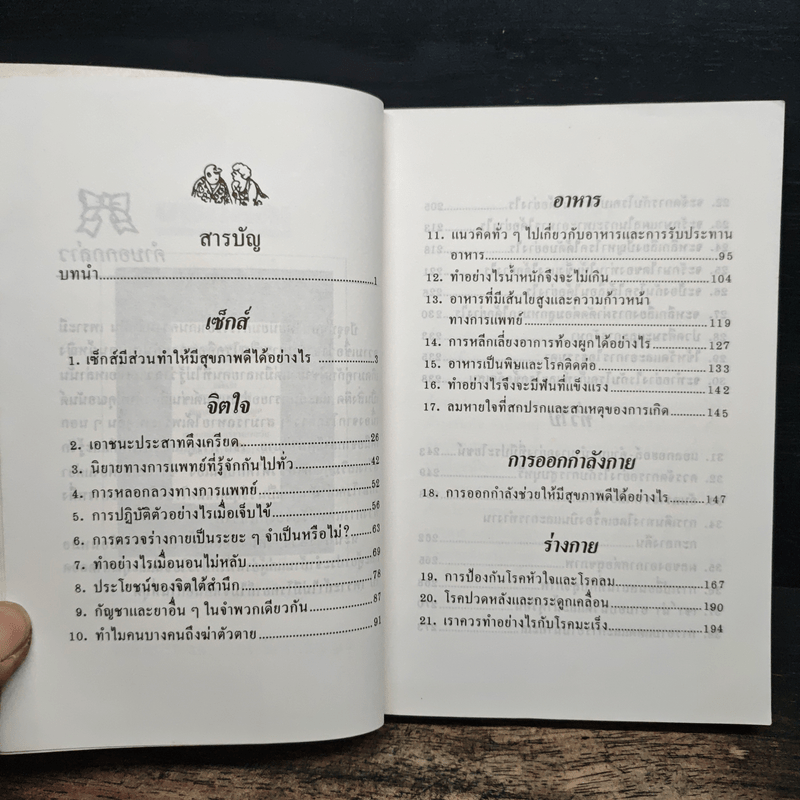 สารบัญ
บทนำ 1
เซ็กส์
1. เซ็กส์มีส่วนทำให้มีสุขภาพดีได้อย่างไร 3
จิตใจ
2. เอาชนะประสาทตึงเครียด 26
3. นิยายทางการแพทย์ที่รู้จักกันไปทั่ว 42
4. การหลอกลวงทางการแพทย์ 52
5. การปฏิบัติตัวอย่างไรเมื่อเจ็บไข้ 56
6. การตรวจร่างกายเป็นระยะ ๆ จำเป็นหรือไม่? 63
7. ทำอย่างไรเมื่อนอนไม่หลับ 69
8. ประโยชน์ของจิตใต้สำนึก 78
9. กัญชาและยาอื่น ๆ ในจำพวกเดียวกัน 87
10. ทำไมคนบางคนถึงฆ่าตัวตาย 91
อาหาร
11. แนวคิดทั่ว ๆ ไปเกี่ยวกับอาหารและการรับประทาน
อาหาร 95
12. ทำอย่างไรน้ำหนักจึงจะไม่เกิน 104
13. อาหารที่มีเส้นใยสูงและความก้าวหน้า
ทางการแพทย์ 119
14. การหลีกเลี่ยงอาการท้องผูกได้อย่างไร 127
15. อาหารเป็นพิษและโรคติดต่อ 133
16. ทำอย่างไรจึงจะมีฟันที่แข็งแรง 142
17. ลมหายใจที่สกปรกและสาเหตุของการเกิด 145
การออกกำลังกาย
18. การออกกำลังช่วยให้มีสุขภาพดีได้อย่างไร 147
ร่างกาย
19. การป้องกันโรคหัวใจและโรคลม 167
20. โรคปวดหลังและกระดูกเคลื่อน 190
21. เราควรทำอย่างไรกับโรคมะเร็ง 194